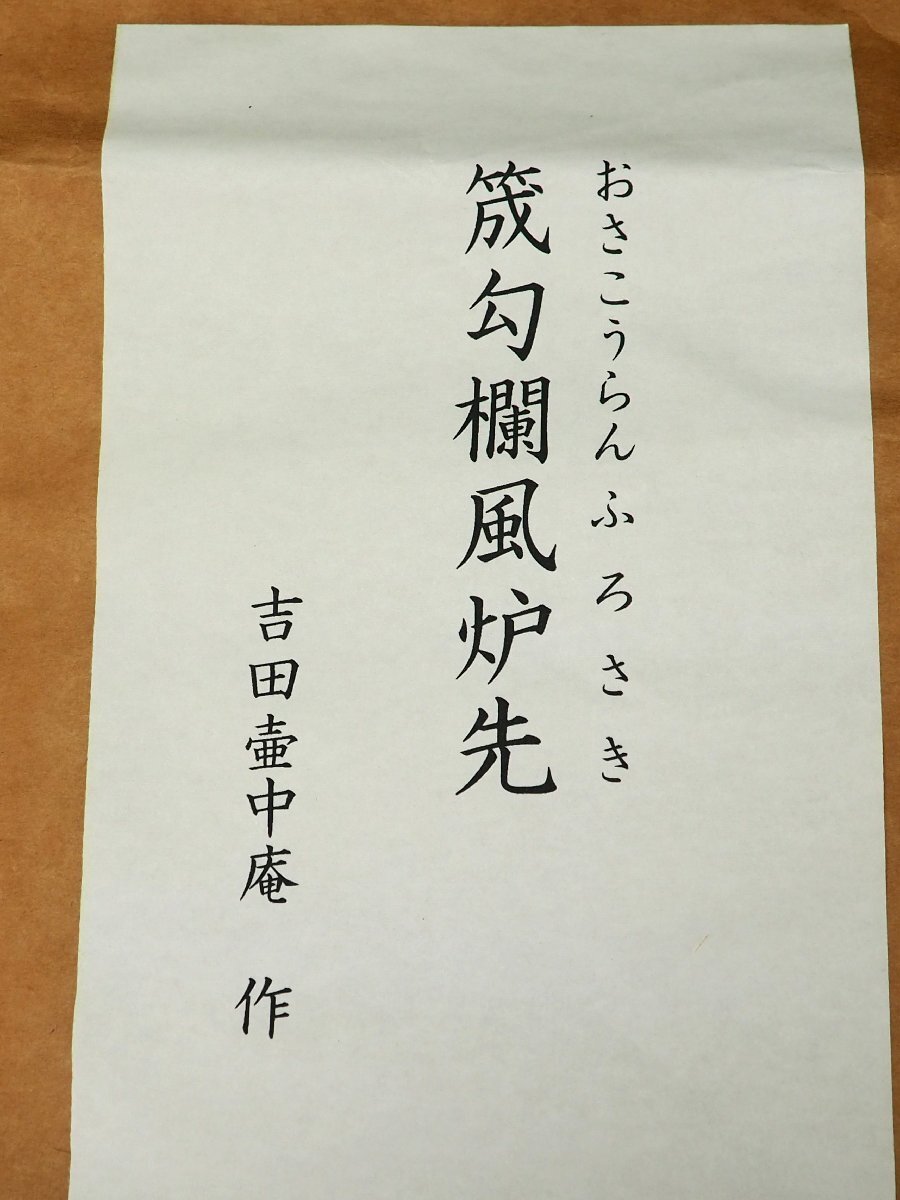 おさこうらんふろさき
筬勾欄風炉先
吉田壷中庵 作